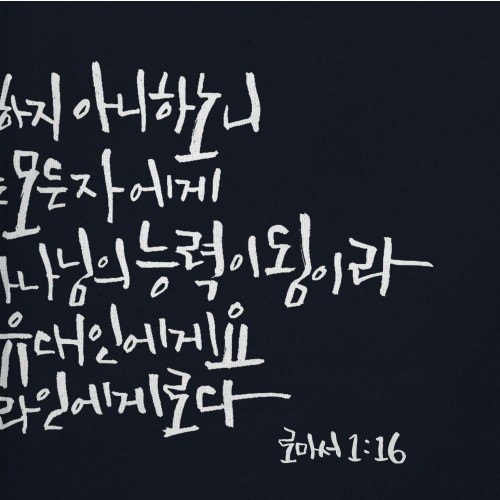 하지 아니하노니
는 모든 자에게
하나님의 능력이 됨이라
유대인에게요
라인에게로다
로마서 1:16